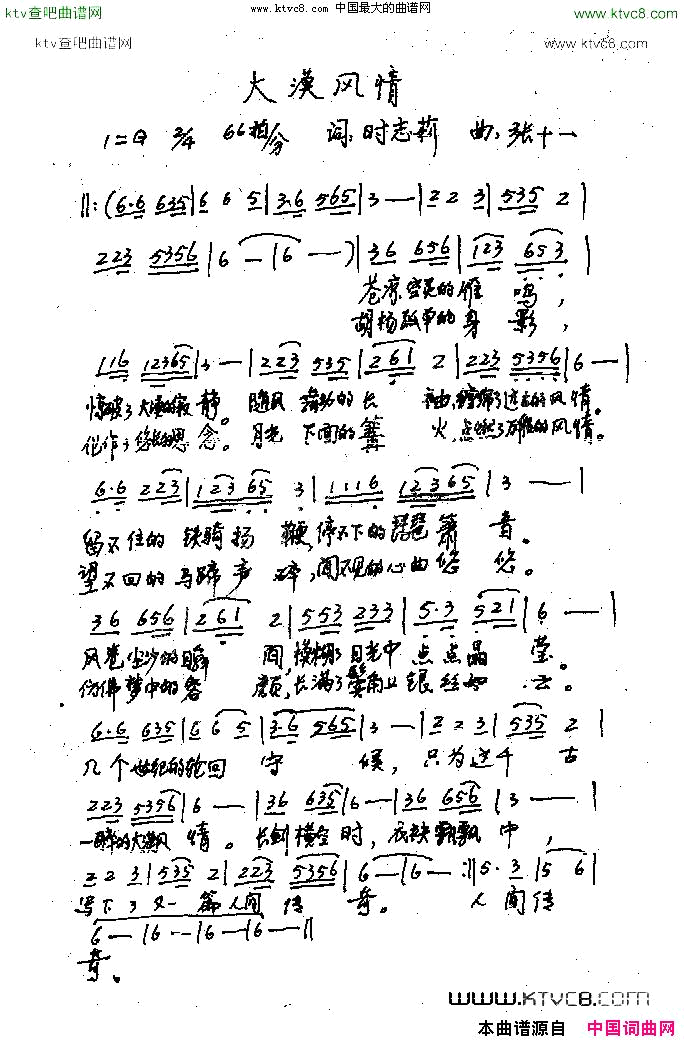 www.ktvc8.com 中国最大的曲谱网
ktv查吧曲谱网 www.ktvc8.com
ktv查吧曲谱网 www.ktvc8.com
大漠风情
1=G 2/4 66拍/分 词：时志莉 曲：张十一
‖:(6·6 635|6 6 5|3·6 565|3 —|2 2 3|535 2|
223 5356|6 —|6 —)|36 656|123 653|
苍凉空灵的雁 鸣，
胡杨孤单的身 影，
116 12365|3 —|223 535|261 2|223 5356|6 —|
惊破了大漠的寂 静。 随风 舞动的长 袖，缠绵了远去的风情。
化作了悠长的思 念。 月光 下面的篝 火，点燃了的风情。
6·6 223|12365 3|1116 12365|3 —|
留不住的铁骑扬 鞭，停不下的琵琶箫 音。
望不回的马蹄声 碎，闻不见的心曲悠 悠。
36 656|261 2|553 233|5·3 521|6 —|
风卷尘沙的瞬 间，模糊了月光中 点点晶 莹。
仿佛梦中的容 颜，长满了鬓角上银丝如 云。
6·6 635|6 6 5|3·6 565|3 —|2 2 3|535 2|
几个世纪的轮回 守 候，只为这千 古
223 5356|6 —|36 635|6 —|36 656|3 —|
一瞬的大漠风 情。长剑横空时，衣袂飘飘中，
2 2 3|535 2|223 5356|6 —|6 — :‖5· 3|5 6|
写下了又一 篇人间 传 奇。 人间传
6 —|6 —|6 —|6 —‖
奇。
www.KTVC8.com
本曲谱源自 中国词曲网